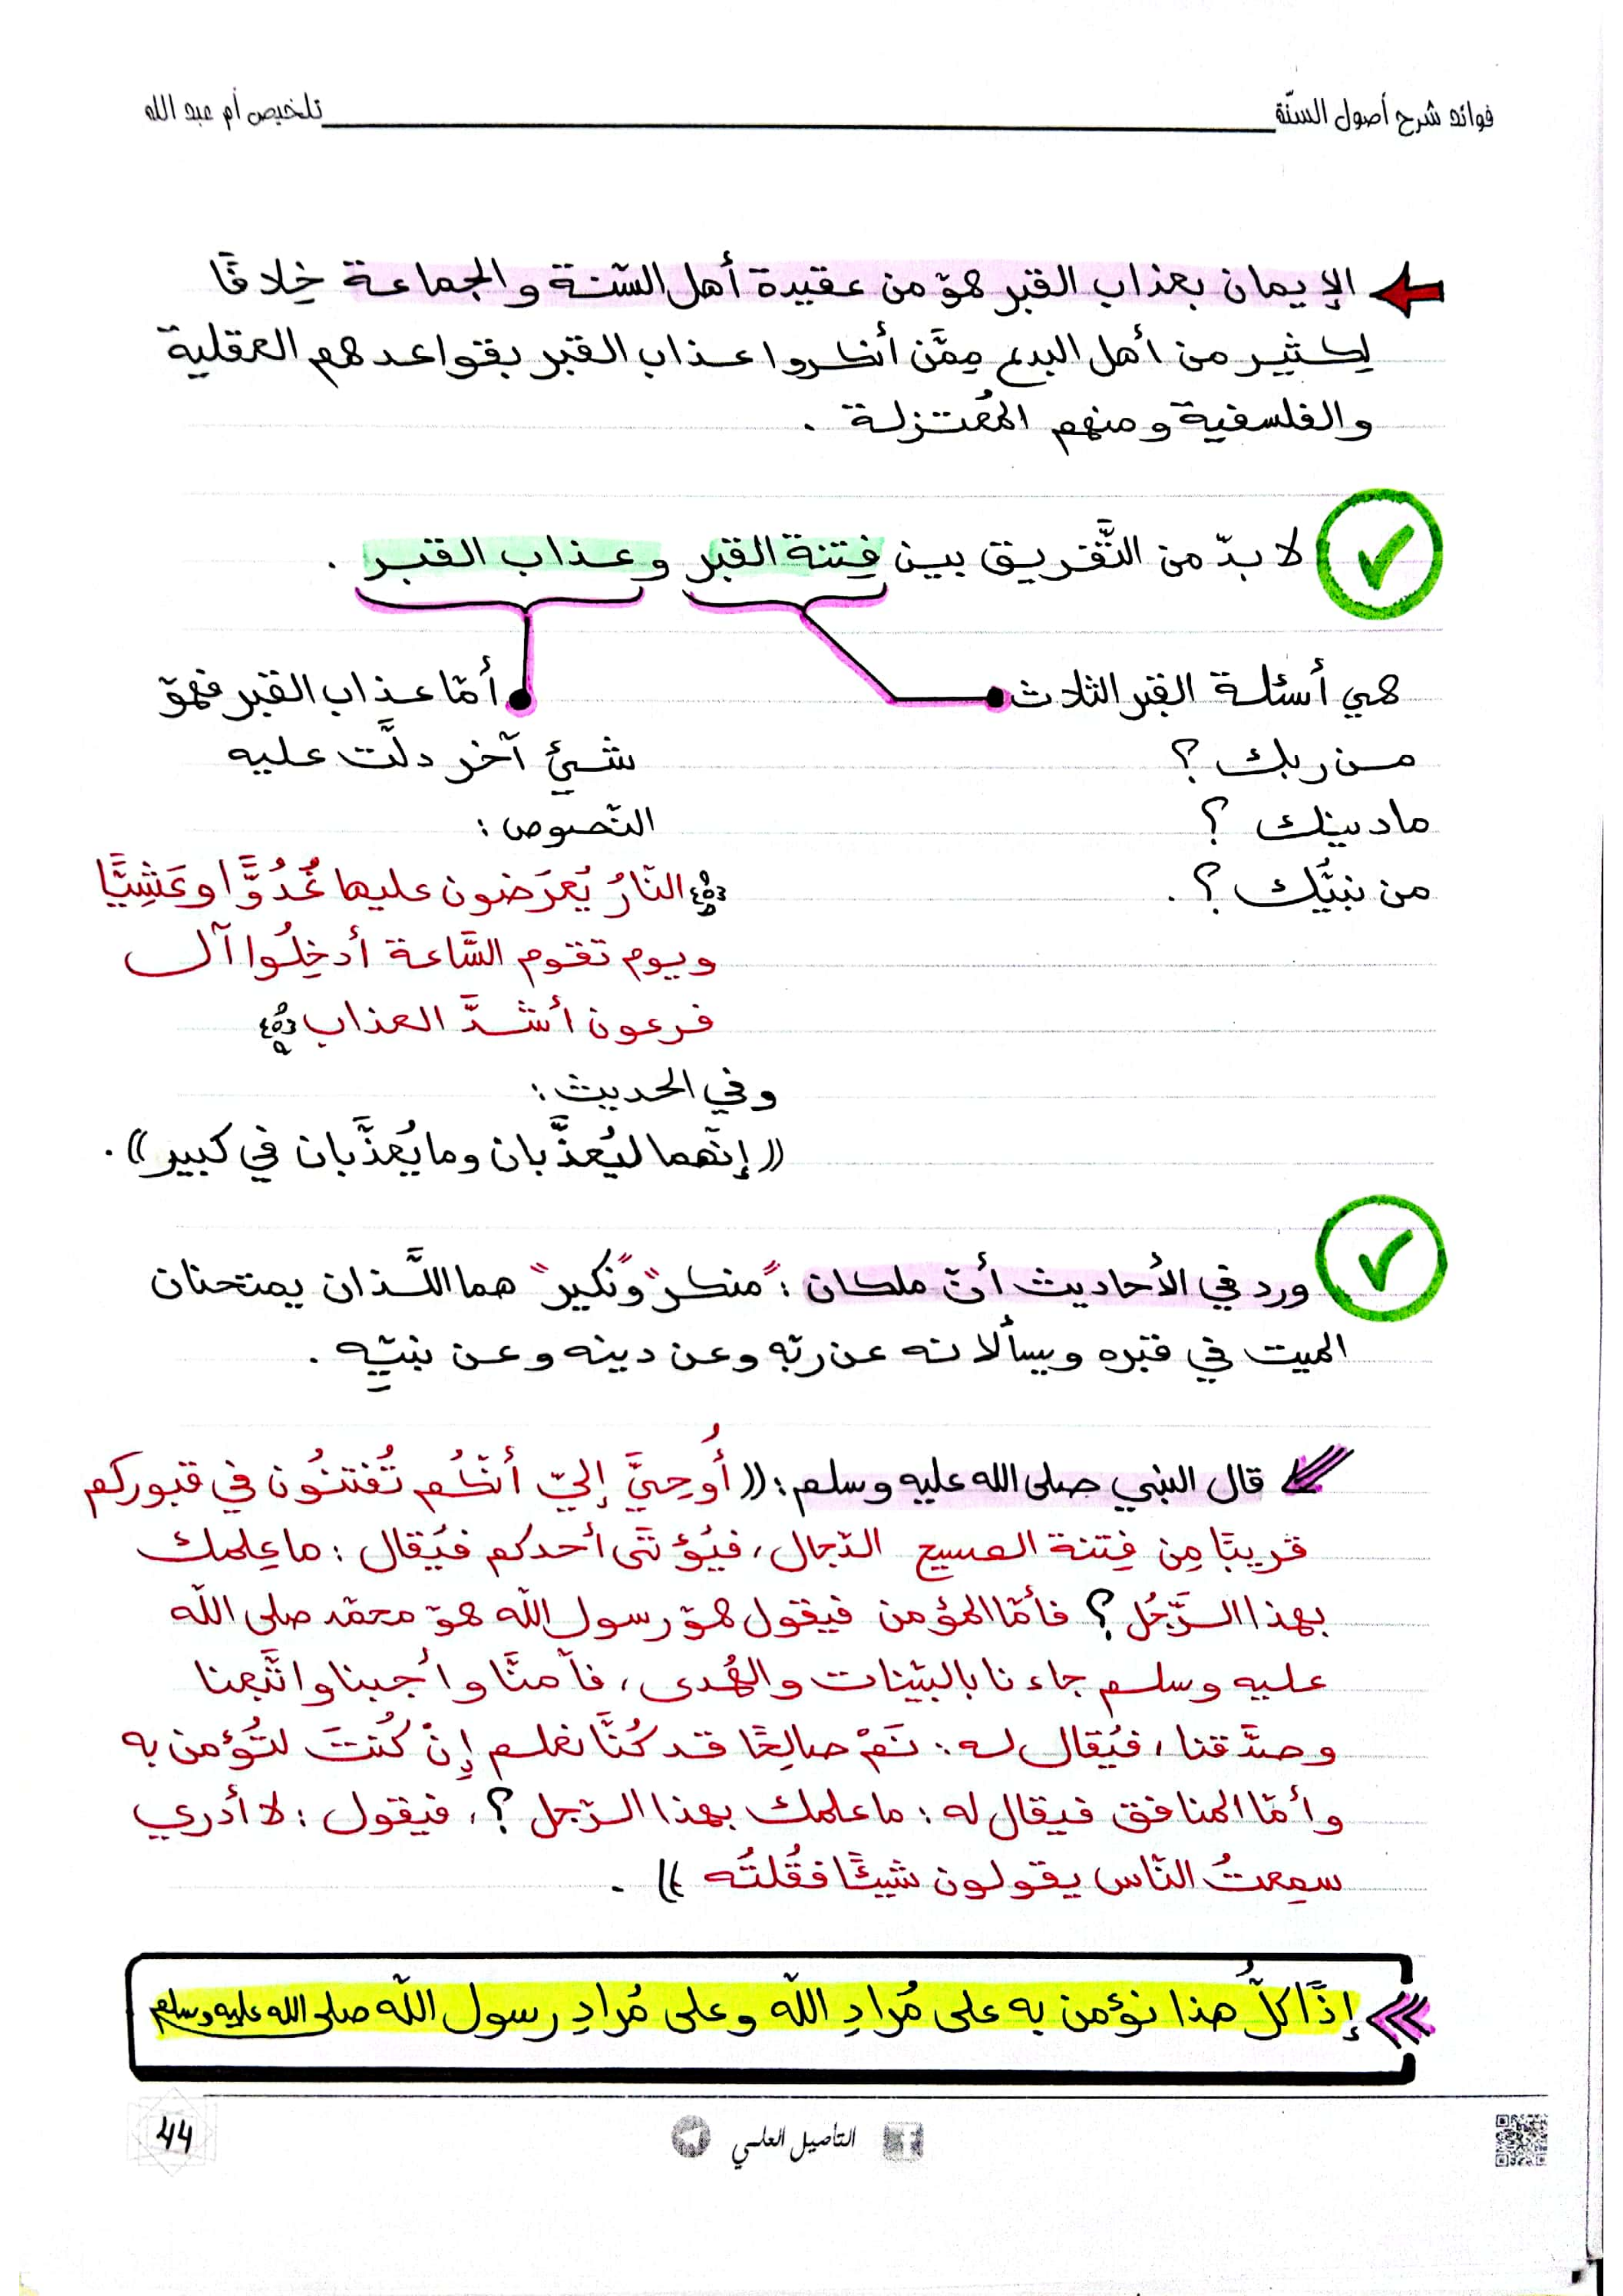 فوائد شرح أصول السنّة
تلخيص أم عبد الله
الإيمان بعذاب القبر هوّ من عقيدة أهل السّنة والجماعة خِلافًا
لِكثير من أهل البدع مِمَّن أنكروا عذاب القبر بقواعدهم العقلية
والفلسفية ومنهم المُعتزلة .
لا بدّ من التَّفريق بين فِتنة القبر وعذاب القبر .
هي أسئلة القبر الثلاث
من ربك ؟
ما دينك ؟
من نبيُّك ؟ .
أمّا عذاب القبر فهوّ
شيئ آخر دلَّت عليه
النّصوص :
﴿النّارُ يُعرَضون عليها غُدُوًّا وعَشِيًّا
ويوم تقوم السَّاعة أدخِلُوا آل
فرعون أشدَّ العذاب﴾
وفي الحديث :
((إنّهما ليُعذَّبان وما يُعذَّبان في كبير)) .
ورد في الأحاديث أنّ ملكان : "منكر" و"نكير" هما اللَّذان يمتحنان
الميت في قبره ويسألانه عن ربّه وعن دينه وعن نبيّه .
قال النبي صلى الله عليه وسلم : ((أُوحِيَّ إليّ أنّكُم تُفتنُون في قبوركم
قريبًا مِن فِتنة المسيح الدّجال ، فيُؤتَى أحدكم فيُقال : ما عِلمك
بهذا الرَّجُل ؟ فأمّا المؤمن فيقول هوّ رسول اللّه هوّ محمّد صلى اللّه
عليه وسلم جاءنا بالبيّنات والهُدى ، فآمنَّا وأجبنا واتَّبعنا
وصدَّقنا ، فيُقال له : نَمْ صالِحًا قد كُنَّا نعلم إنْ كُنتَ لتُؤمن به
وأمّا المنافق فيقال له : ما علمك بهذا الرّجل ؟ ، فيقول : لا أدري
سمِعتُ النّاس يقولون شيئًا فقُلتُه )) .
إذًا كلُّ هذا نؤمن به على مُرادِ اللّه وعلى مُرادِ رسول اللّه صلى الله عليه وسلم
التأصيل العلمي
44